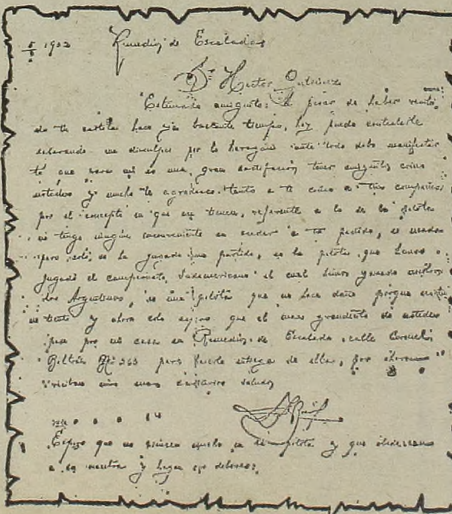 5/5 1932 Remedios de Escalada
Sr Hector Gutierrez
Estimado amiguito: A pesar de haber recibi
do tu cartita hace ya bastante tiempo, hoy puedo contestarte
deberando me disculpes por lo haragán ante todo debo manifestar
te que para mi es una gran satisfacción tener amiguitos como
ustedes y mucho te agradezco tanto a ti como a tus compañeros
por el concepto en que me tienen, referente a lo de la pelota
no tengo ningún inconveniente en acceder a tu pedido, es usada
pero solo se la jugado un partido, es la pelota que hemos
jugado el campeonato Sudamericano el cual hemos ganado nosotros
los Argentinos, es una pelota que no hace daño porque
y ahora solo espero que el mas grandecito de ustedes
pase por mi casa en Remedios de Escalada calle Cornelio
Beltrán No 363 para hacerle entrega de ella, por ahora
reciban mis mas sinceros saludos
Espero que no
a su mamita y hagan sus deberes.